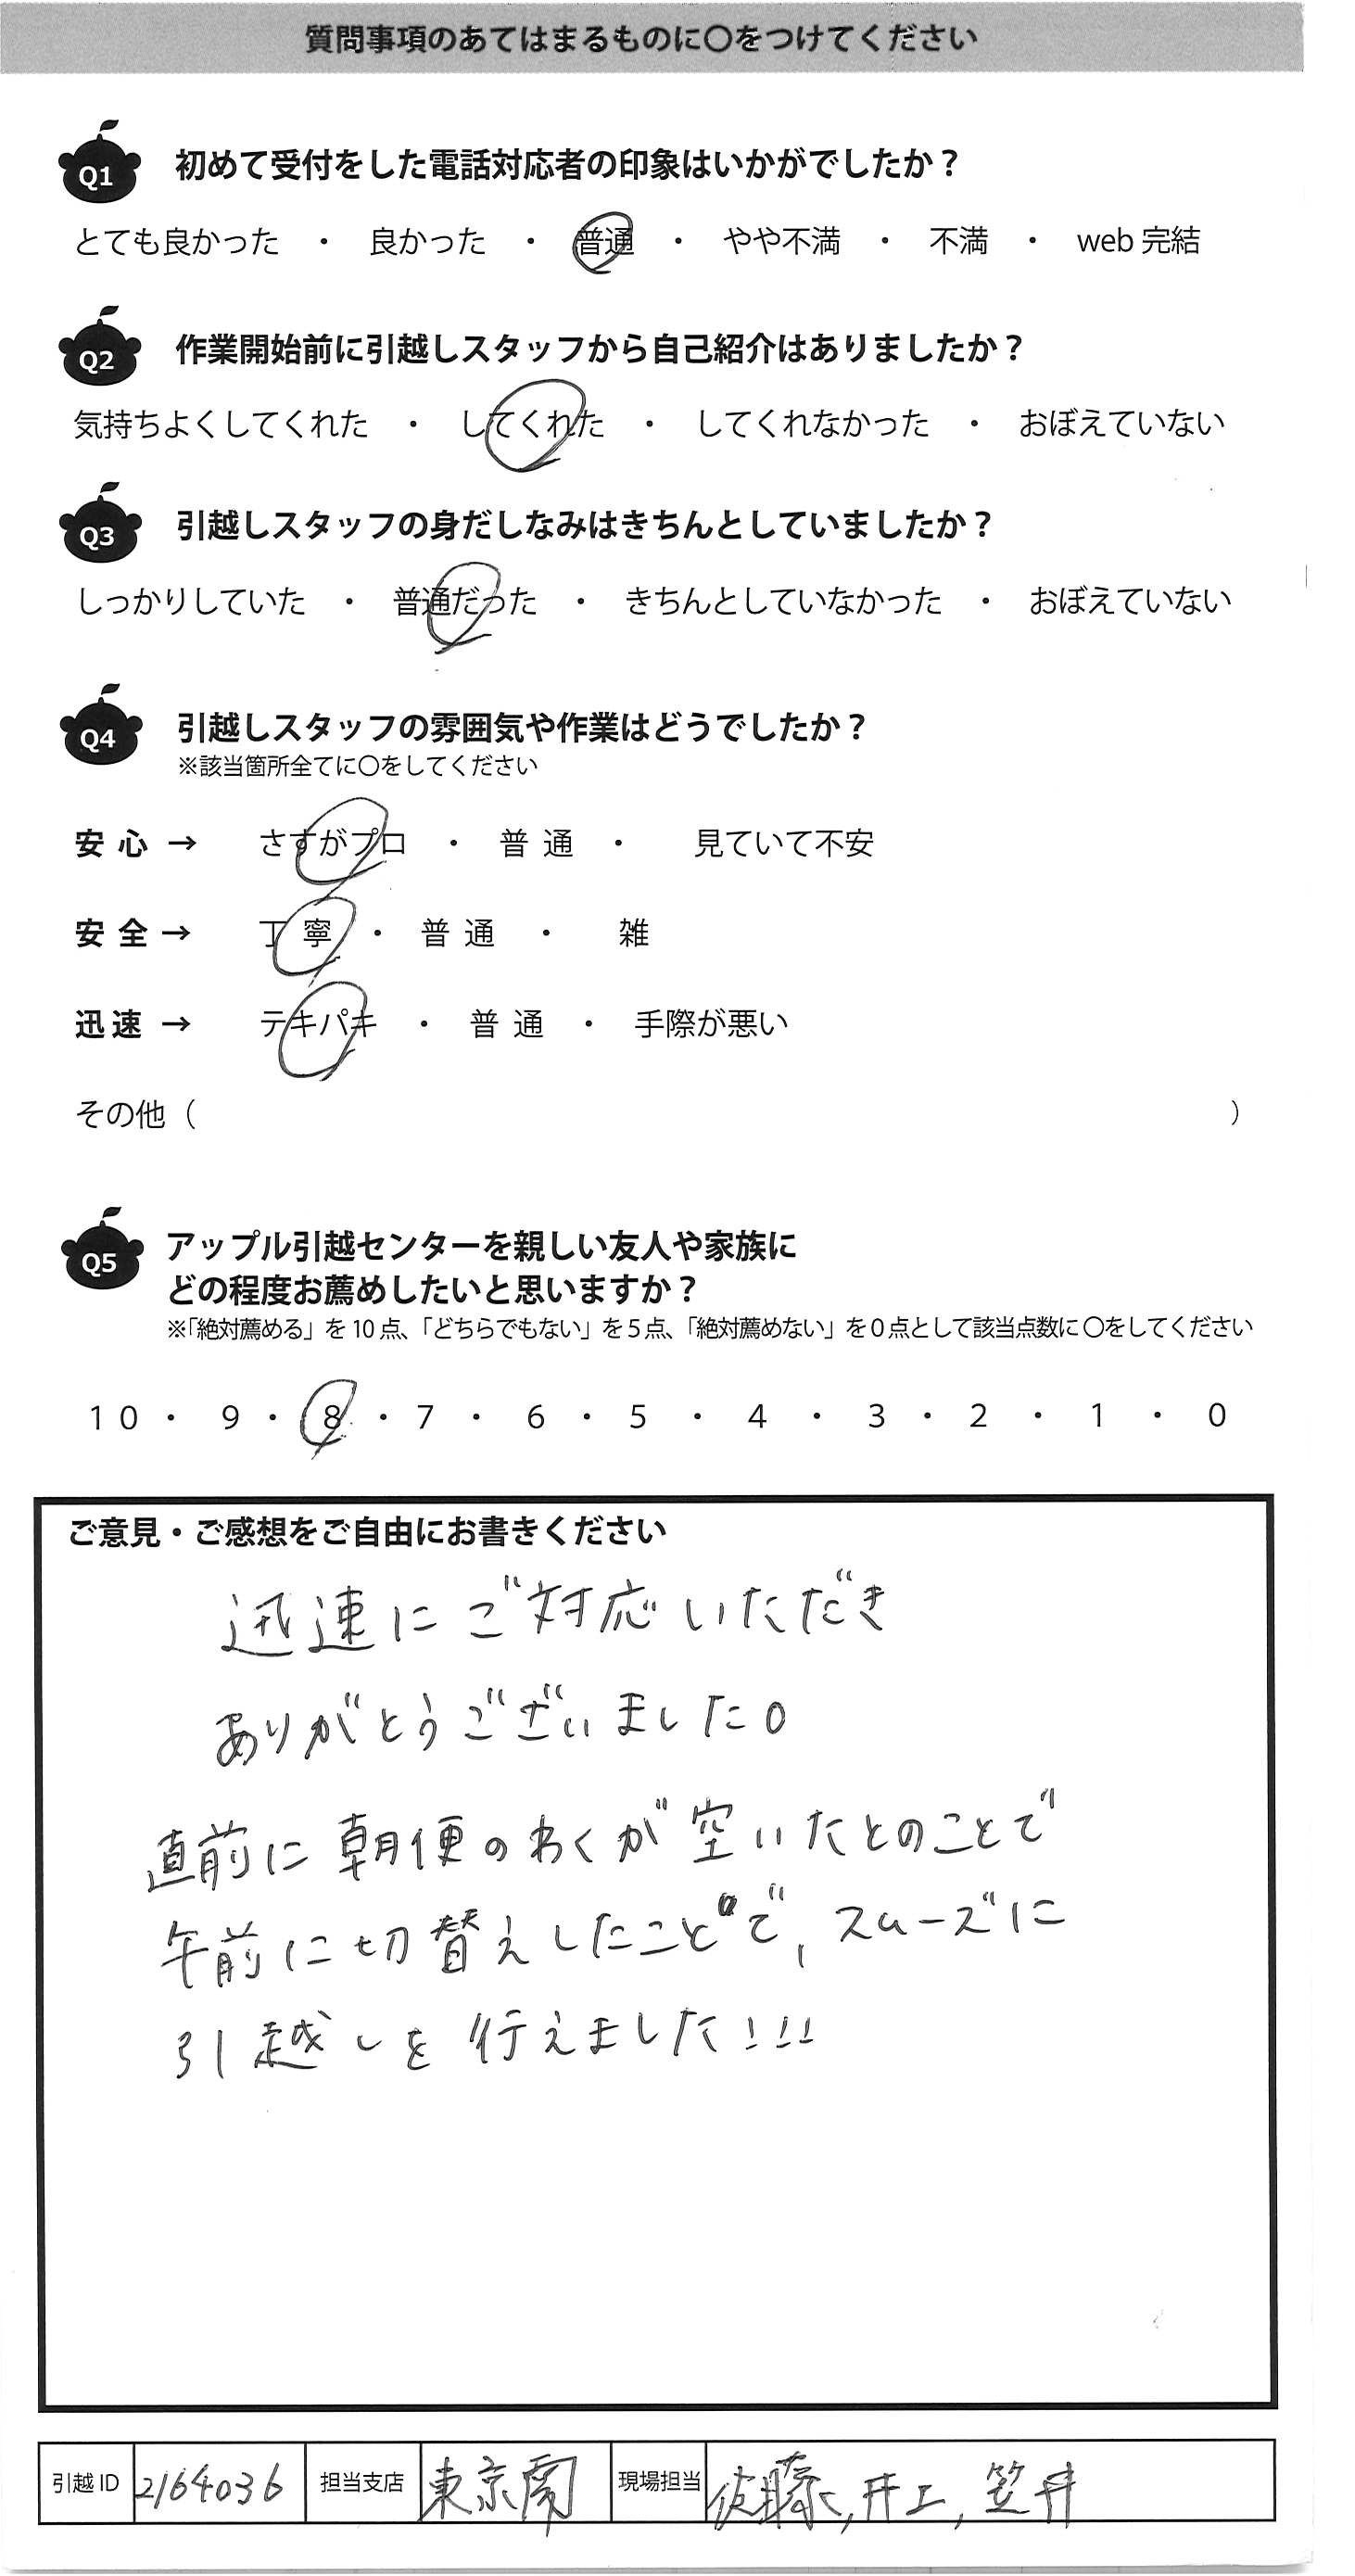 質問事項のあてはまるものに〇をつけてください
Q1 初めて受付をした電話対応者の印象はいかがでしたか？
とても良かった ・ 良かった ・ 普通 ・ やや不満 ・ 不満 ・ web 完結
Q2 作業開始前に引越しスタッフから自己紹介はありましたか？
気持ちよくしてくれた ・ してくれた ・ してくれなかった ・ おぼえていない
Q3 引越しスタッフの身だしなみはきちんとしていましたか？
しっかりしていた ・ 普通だった ・ きちんとしていなかった ・ おぼえていない
Q4 引越しスタッフの雰囲気や作業はどうでしたか？
※該当箇所全てに〇をしてください
安 心 → さすがプロ ・ 普 通 ・ 見ていて不安
安 全 → 丁 寧 ・ 普 通 ・ 雑
迅 速 → テキパキ ・ 普 通 ・ 手際が悪い
その他（ ）
Q5 アップル引越センターを親しい友人や家族に
どの程度お薦めしたいと思いますか？
※「絶対薦める」を10点、「どちらでもない」を5点、「絶対薦めない」を0点として該当点数に〇をしてください
10 ・ 9 ・ 8 ・ 7 ・ 6 ・ 5 ・ 4 ・ 3 ・ 2 ・ 1 ・ 0
ご意見・ご感想をご自由にお書きください
迅速にご対応いただき
ありがとうございました。
直前に朝便のわくが空いたとのことで
午前に切替えしたことで、スムーズに
引越しを行えました!!!
引越ID 2164036 担当支店 東京南 現場担当 佐藤, 井上, 笠井